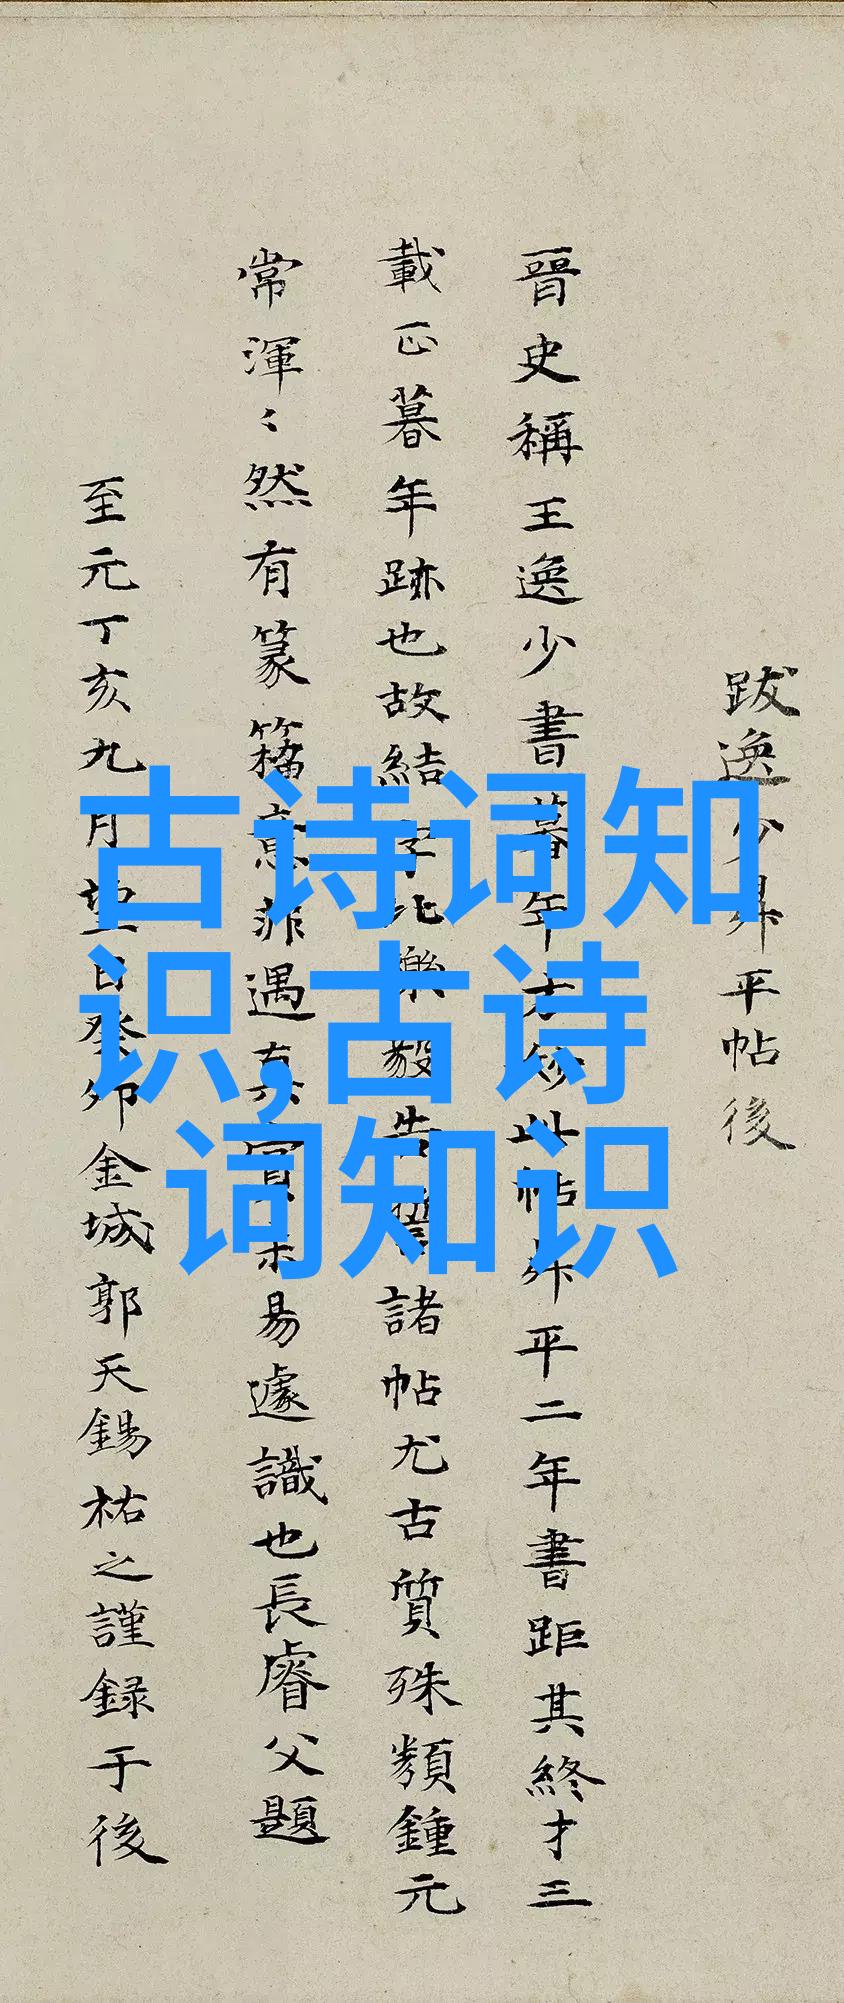 跋逸少昇平帖後
晉史稱王逸少書暮年方妙此帖昇平二年書距其終才三
載正暮年跡也故結字比樂毅告誓諸帖尤古質殊類鍾元
常渾〻然有篆籀意非遇真賞未易遽識也長睿父題
至元丁亥九月望日癸卯金城郭天錫祐之謹録于後
古诗词知
识,古诗
词知识